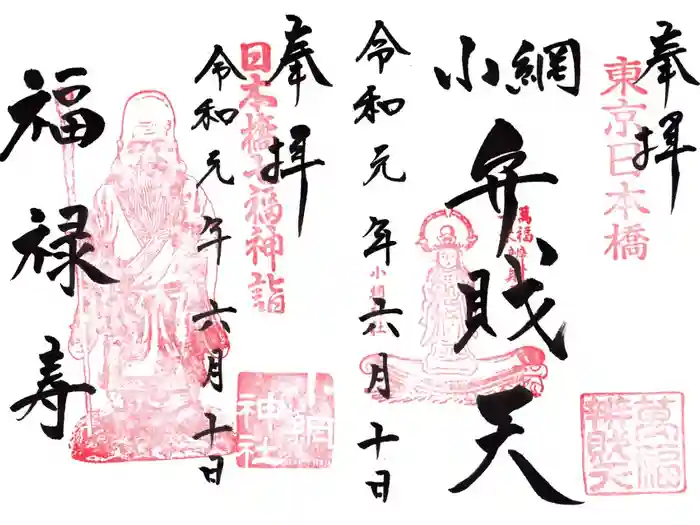 奉拝
東京日本橋
小網
弁財天
萬福
令和元年六月十日
小網神社
萬福
辨財天
奉拝
日本橋七福神詣
令和元年六月十日
福禄寿
小網
神社